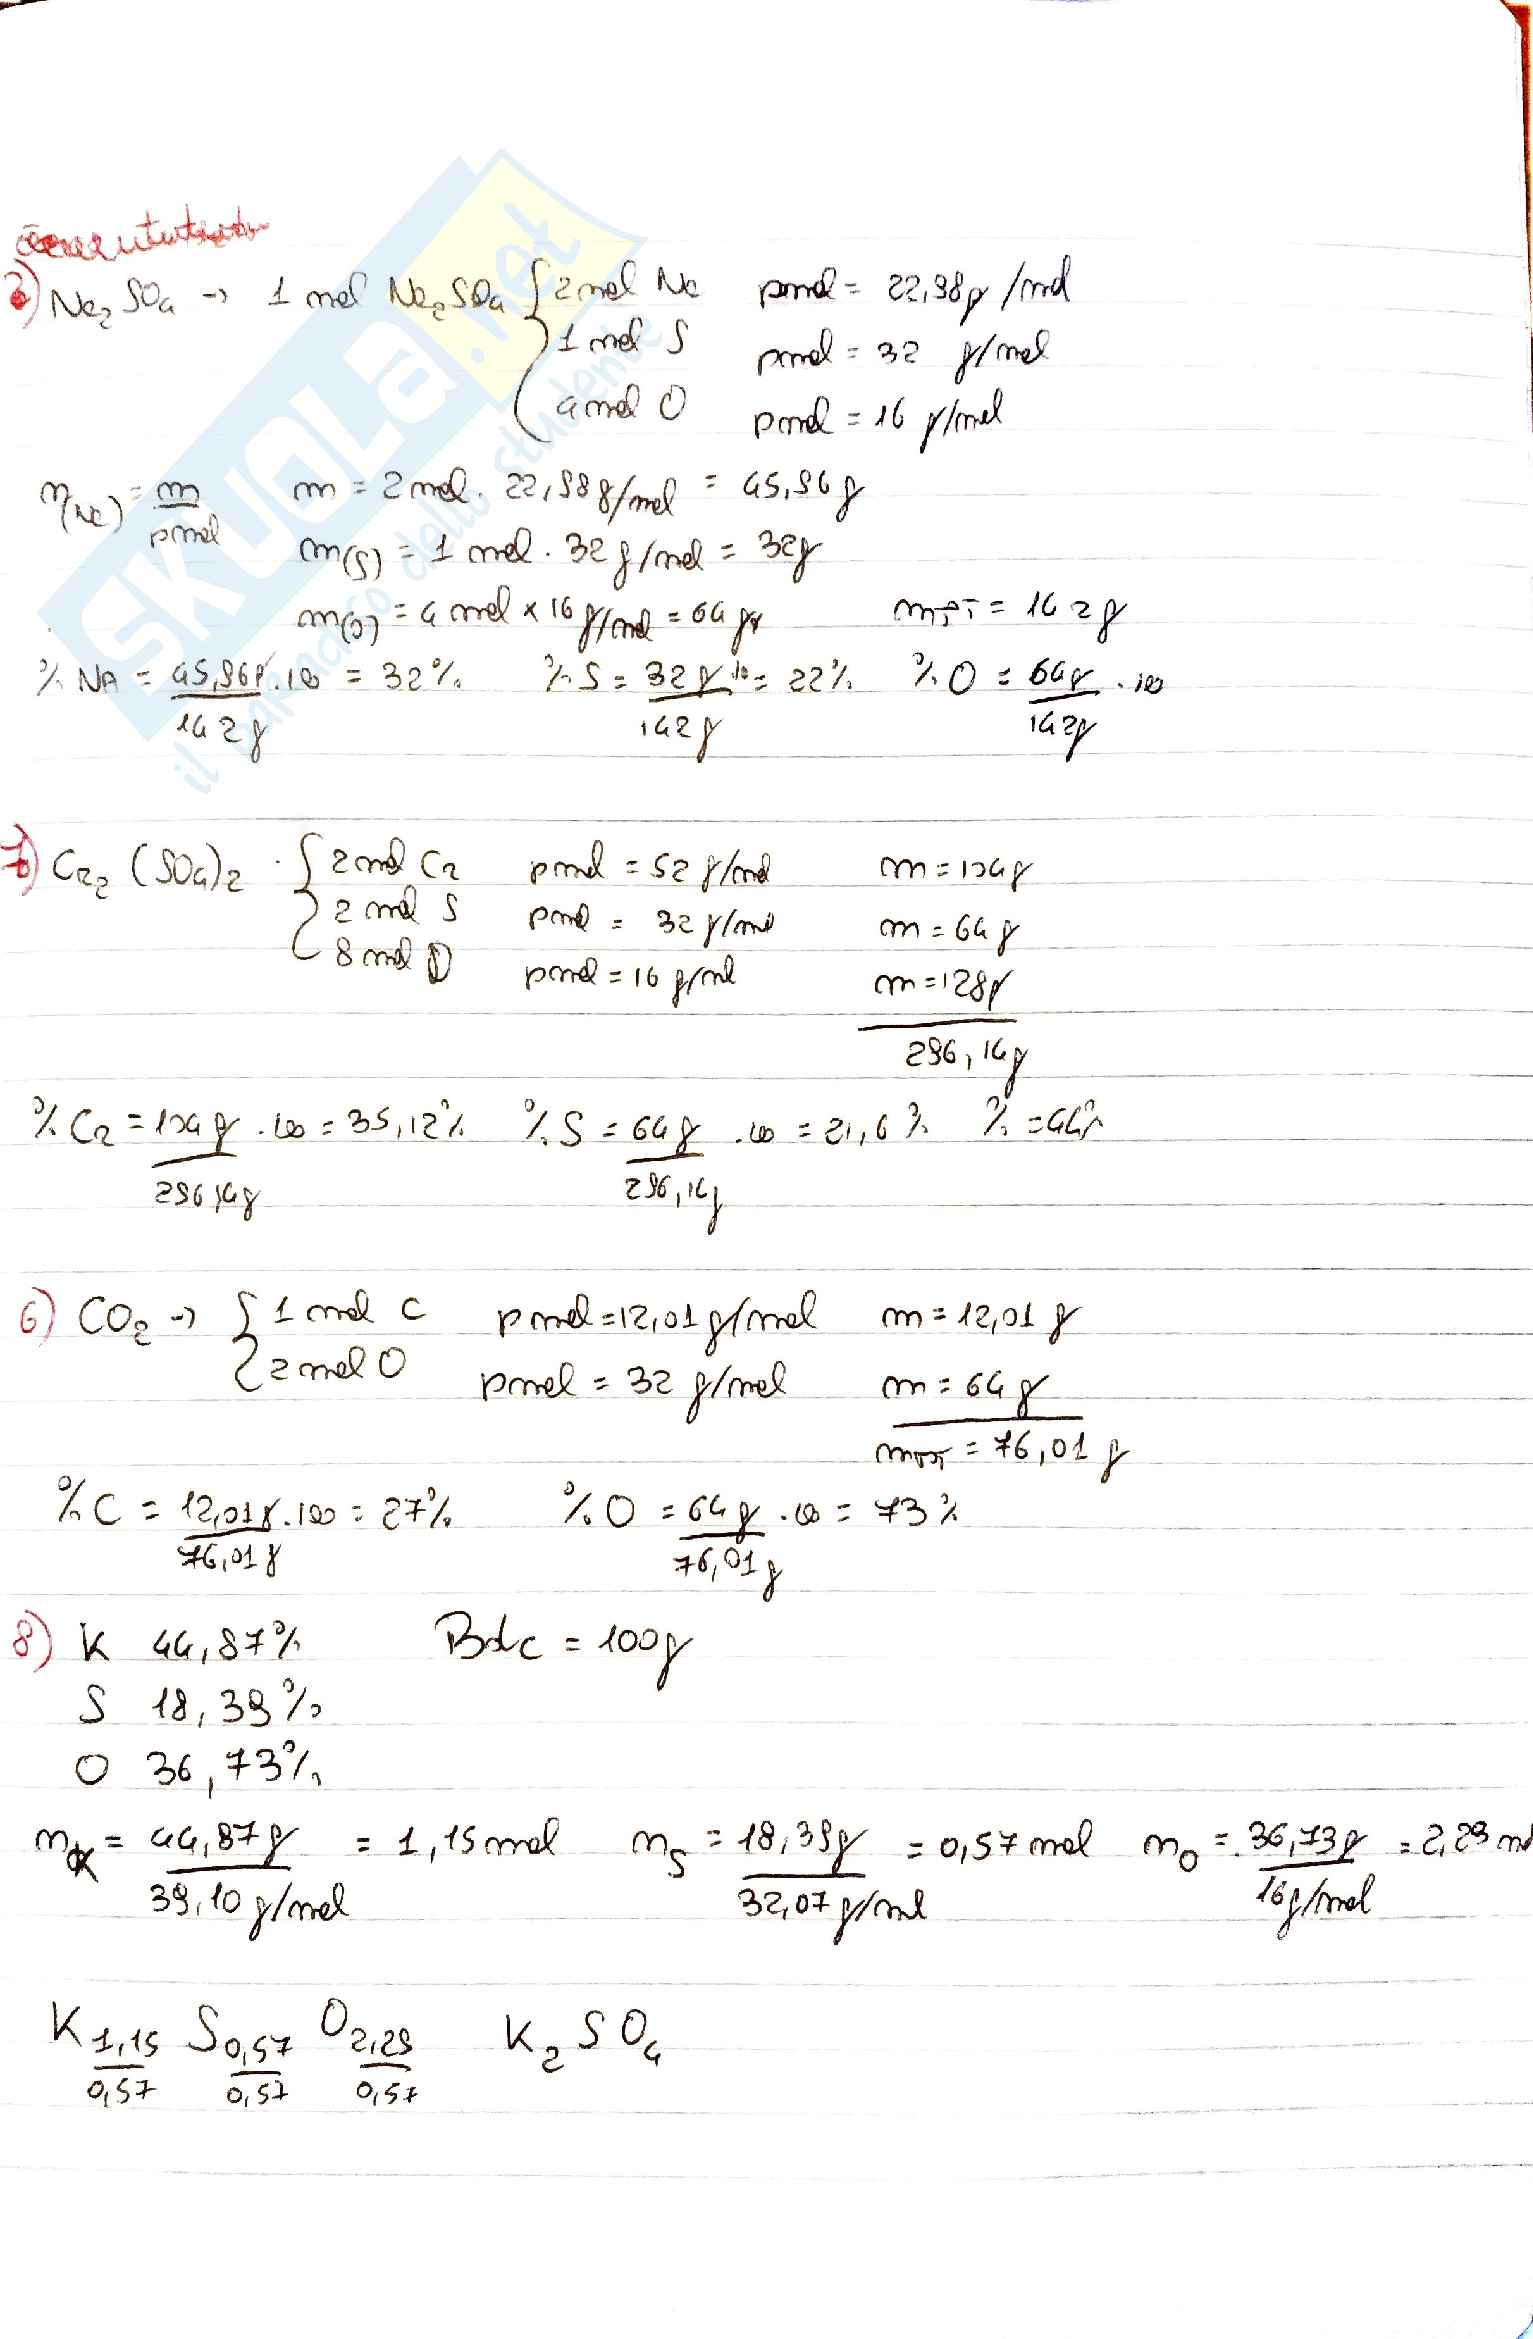 Na₂SO₄ → 1 mol Na₂SO₄ { 2 mol Na pmol = 22,98g/mol
1 mol S pmol = 32 g/mol
4 mol O pmol = 16 g/mol
n(Na) = m/pmol m = 2 mol · 22,98g/mol = 45,96g
m(S) = 1 mol · 32g/mol = 32g
m(O) = 4 mol × 16g/mol = 64 gr mTOT = 142g
% NA = 45,96g/142g · 100 = 32% % S = 32g/142g · 100 = 22% % O = 64g/142g · 100
7) Cr₂(SO₄)₂ { 2 mol Cr pmol = 52 g/mol m = 104g
2 mol S pmol = 32 g/mol m = 64g
8 mol O pmol = 16 g/mol m = 128g
296,14g
% Cr = 104g/296,14g · 100 = 35,12% % S = 64g/296,14g · 100 = 21,6% % = 44%
6) CO₂ → { 1 mol C pmol = 12,01g/mol m = 12,01g
2 mol O pmol = 32 g/mol m = 64g
mTOT = 76,01g
% C = 12,01g/76,01g · 100 = 27% % O = 64g/76,01g · 100 = 73%
8) K 44,87% BdC = 100g
S 18,39%
O 36,73%
nK = 44,87g/39,10g/mol = 1,15mol nS = 18,39g/32,07g/mol = 0,57mol nO = 36,73g/16g/mol = 2,29 m
K 1,15/0,57 S 0,57/0,57 O 2,29/0,57 K₂SO₄
SKUOLA.net
il paradiso dello studente